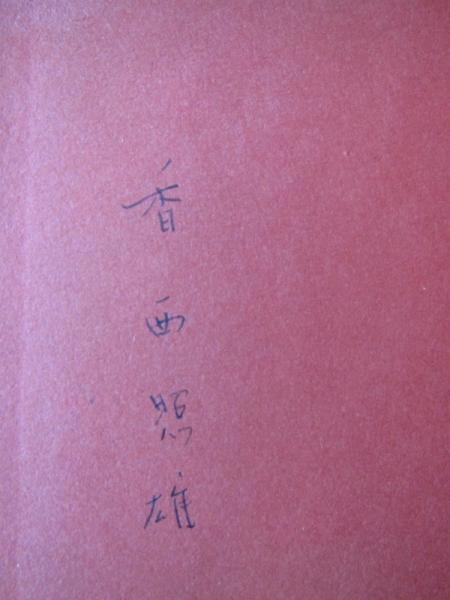 香西照雄